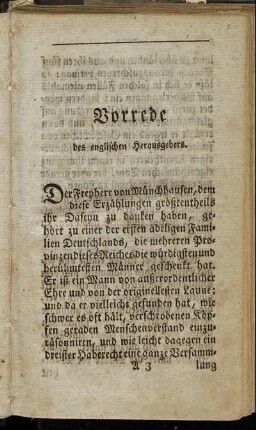 Vorrede
des englischen Herausgebers.
Der Freyherr von Münchhausen, dem
diese Erzählungen größtentheils
ihr Daseyn zu danken haben, ge-
hört zu einer der ersten adeligen Fami-
lien Deutschlands, die mehreren Pro-
vinzen dieses Reiches die würdigsten und
berühmtesten Männer geschenkt hat.
Er ist ein Mann von außerordentlicher
Ehre und von der originellesten Laune;
und da er vielleicht gefunden hat, wie
schwer es oft hält, verschrobenen Köp-
fen geraden Menschenverstand einzu-
räsonniren, und wie leicht dagegen ein
dreister Haberecht eine ganze Versamm-
A 3 lung